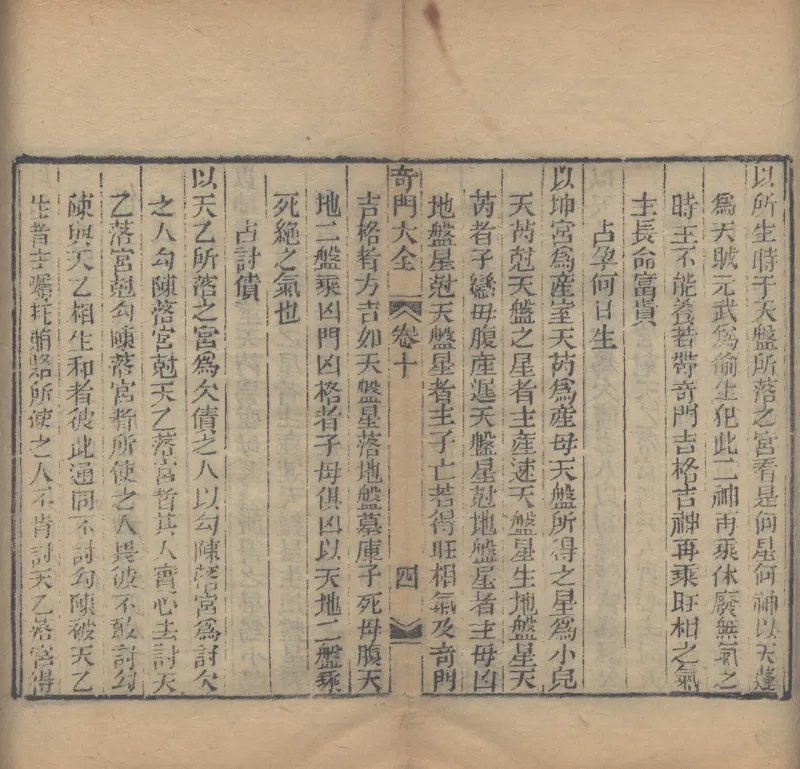 以所生時子天盤所落之宮看是何星何神以天蓬
為天賊元武為偷生犯此二神再乘休廢無氣之
時主不能養若帶奇門吉格吉神再乘旺相之氣
主長命富貴
占孕何日生
以坤宮為産室天芮為産母天盤所得之星為小兒
天芮尅天盤之星者主産速天盤星生地盤星天
芮者子戀母腹産遲天盤星尅地盤星者主母凶
地盤星尅天盤星者主子亡若得旺相氣及奇門
奇門大全 卷十 四
吉格者方吉如天盤星落地盤墓庫子死母腹天
地二盤乘凶門凶格者子母俱凶以天地二盤乘
死絶之氣也
占討債
以天乙所落之宮為欠債之人以勾陳落宮為討欠
之人勾陳落宮尅天乙落宮者其人實心去討天
乙落宮尅勾陳落宮者所使之人畏彼不敢討勾
陳與天乙相生和者彼此通同不討勾陳被天乙
生者主囑托賄賂所使之人不肯討天乙落宮得